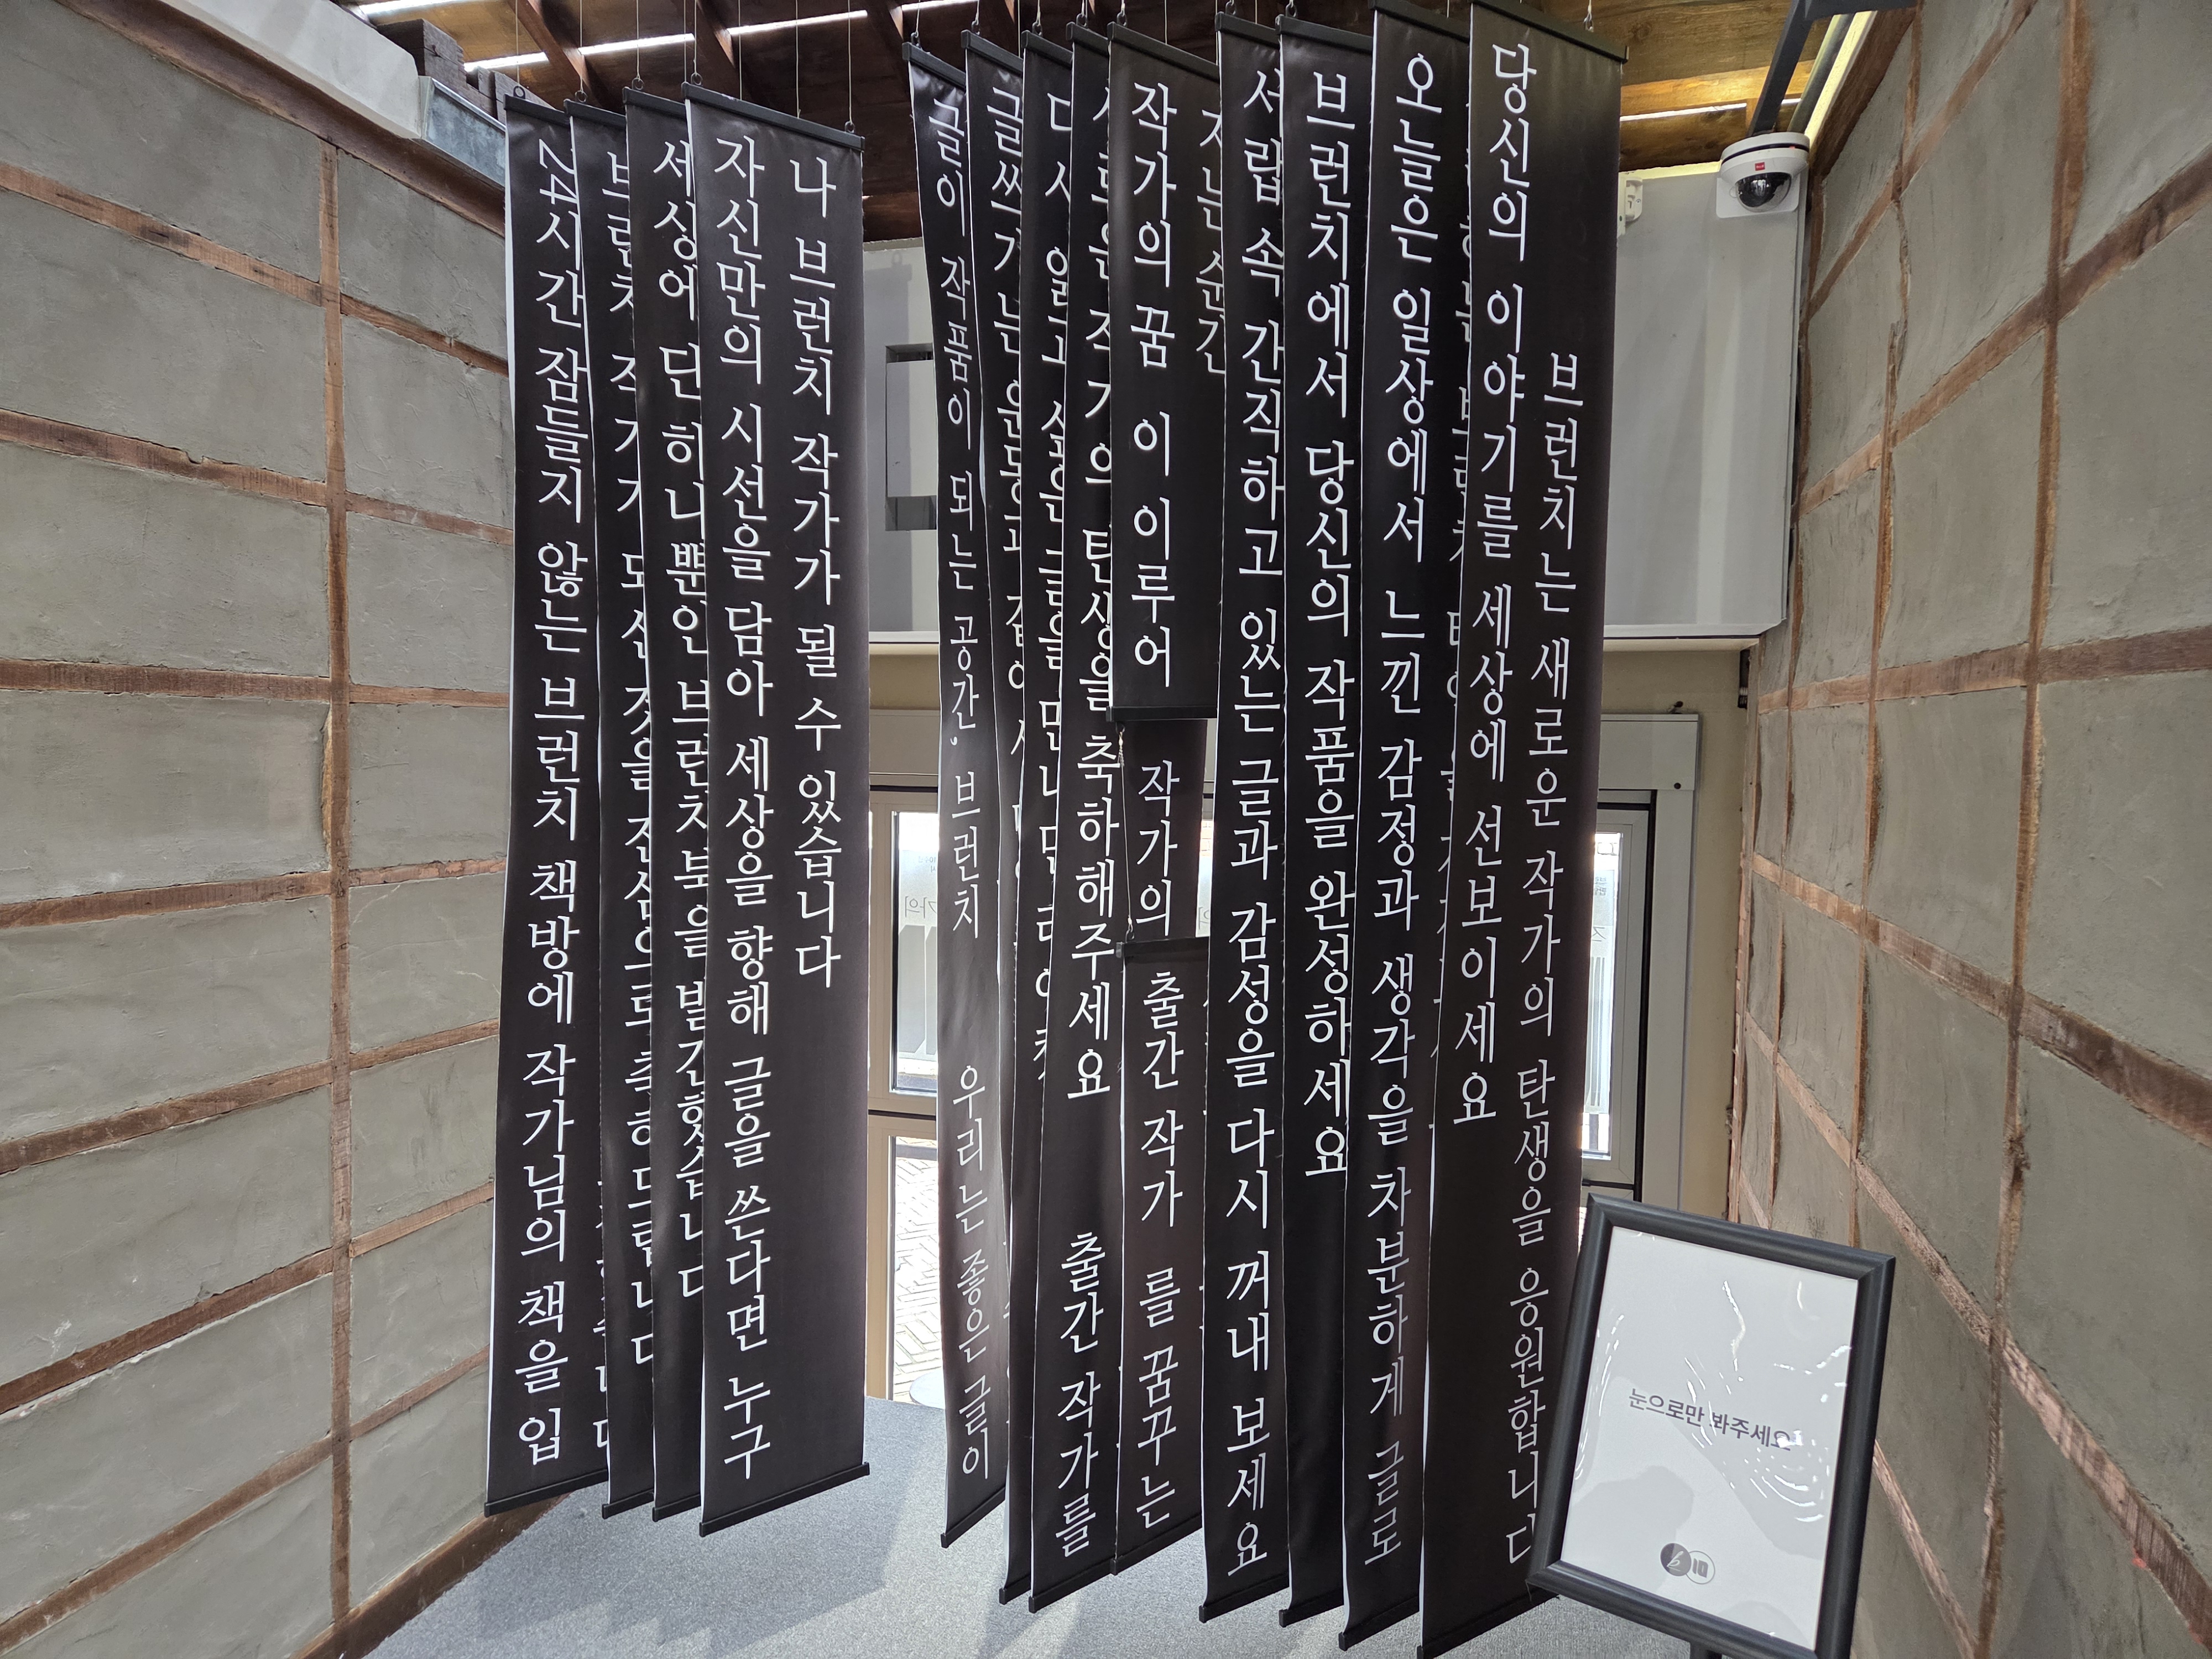 24시간 잠들지 않는 브런치 책방에 작가님의 책을 입
브런치 작가가 되신 것을 진심으로 축하드립니다
세상에 단 하나뿐인 브런치북을 발간했습니다
자신만의 시선을 담아 세상을 향해 글을 쓴다면 누구
나 브런치 작가가 될 수 있습니다
글이 작품이 되는 공간, 브런치
우리는 좋은 글이
글쓰기는 운동과 같아서
다시 읽고 싶은 글을 만나면
새로운 작가의 탄생을 축하해주세요
출간 작가를
작가의 꿈 이 이루어
지는 순간
작가의
출간 작가 를 꿈꾸는
서랍 속 간직하고 있는 글과 감성을 다시 꺼내 보세요
브런치에서 당신의 작품을 완성하세요
오늘은 일상에서 느낀 감정과 생각을 차분하게 글로
당신의 이야기를 세상에 선보이세요
브런치는 새로운 작가의 탄생을 응원합니다
눈으로만 봐주세요